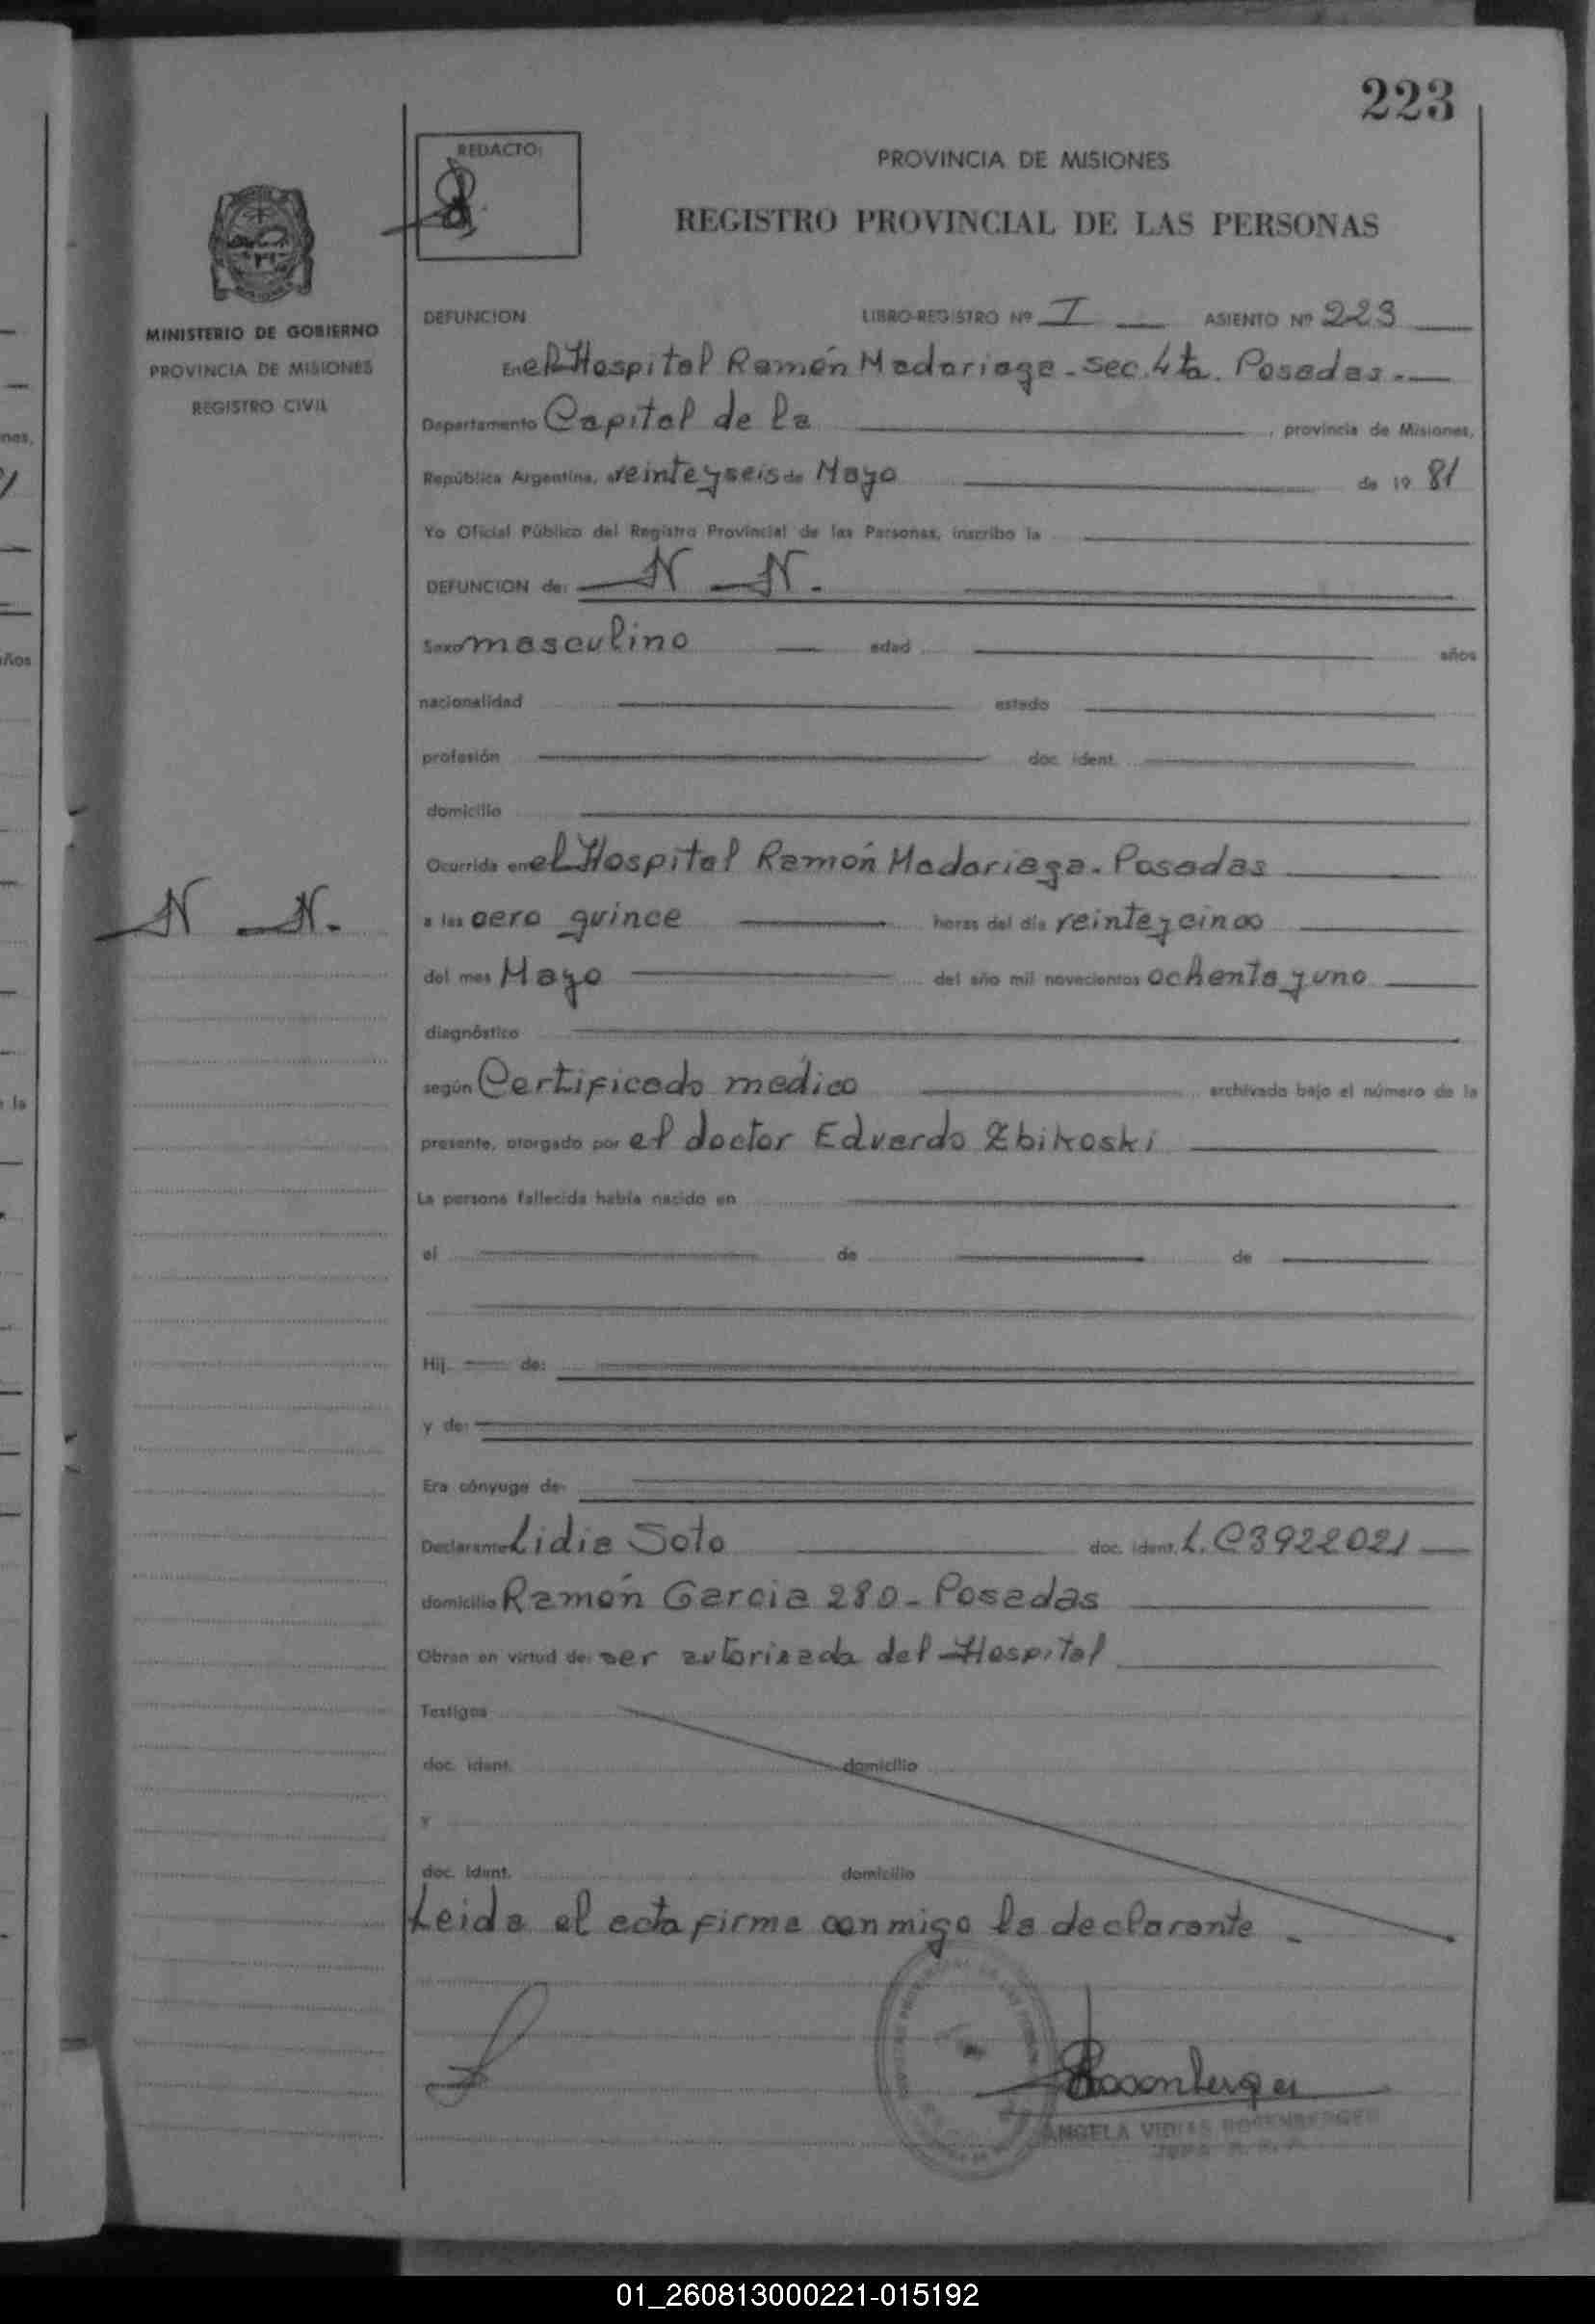 223
REDACTO:
PROVINCIA DE MISIONES
REGISTRO PROVINCIAL DE LAS PERSONAS
MINISTERIO DE GOBIERNO
PROVINCIA DE MISIONES
REGISTRO CIVIL
DEFUNCION LIBRO-REGISTRO Nº I ASIENTO Nº 223
En el Hospital Ramón Madariaga - sec. 4ta. Posadas.
Departamento Capital de la , provincia de Misiones,
República Argentina, a veinteyseis de Mayo de 19 81
Yo Oficial Público del Registro Provincial de las Personas, inscribo la
DEFUNCION de: N N.
Sexo masculino edad años
nacionalidad estado
profesión doc. ident.
domicilio
Ocurrida en el Hospital Ramón Madariaga - Posadas
N N.
a las cero quince horas del día veinteycinco
del mes Mayo del año mil novecientos ochenta y uno
diagnóstico
según Certificado medico archivado bajo el número de la
presente, otorgado por el doctor Eduardo Zbikoski
La persona fallecida había nacido en
el de de
Hij de:
y de:
Era cónyuge de
Declarante Lidia Soto doc. ident. L.C 3922021
domicilio Ramón Garcia 280 - Posadas
Obran en virtud de: ser autorizada del Hospital
Testigos
doc. ident. domicilio
y
doc. ident. domicilio
Leida el acta firma conmigo la declarante
Rosenberger
ANGELA VIDIAS ROSENBERGER
01_260813000221-015192